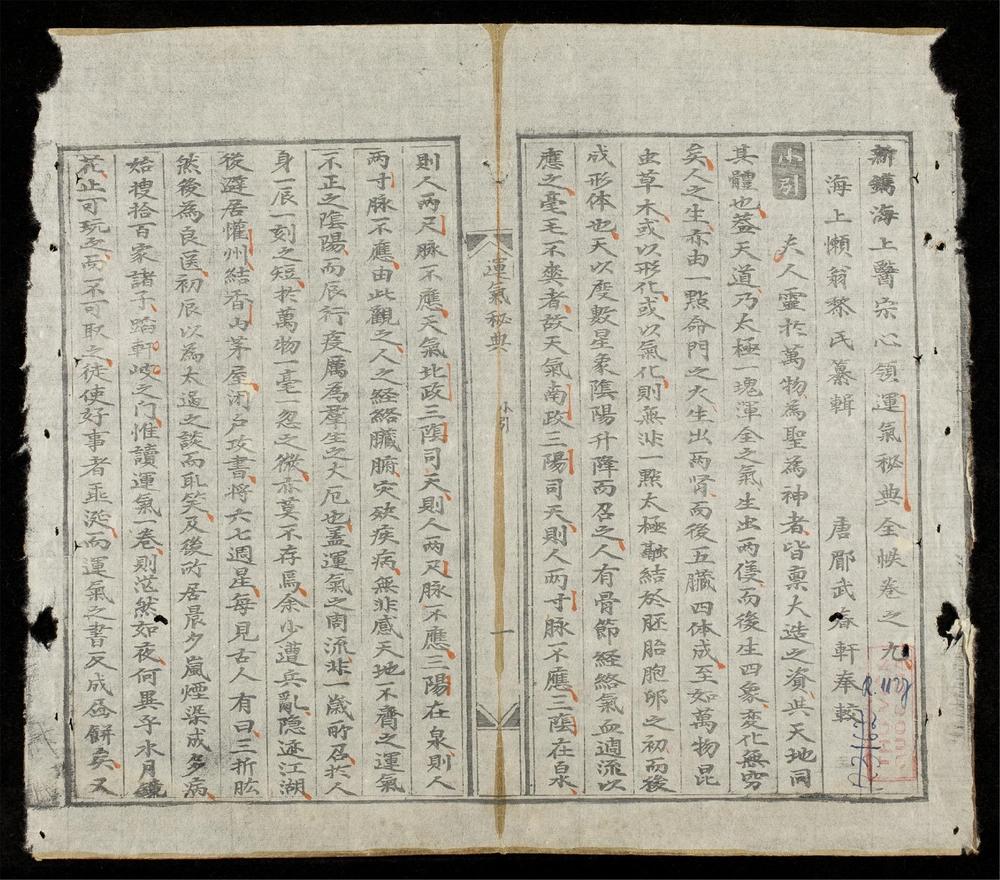 新鐫海上醫宗心領運氣秘典全帙卷之九
海上懶翁黎氏纂輯 唐郿武春軒奉較
小引
夫人靈於萬物為聖為神者皆稟大造之資與天地同
其體也蓋天道乃太極一塊渾全之氣生出兩儀而後生四象変化無穷
矣人之生亦由一點命門之火生出兩肾而後五臟四体成至如萬物昆
虫草木或以形化或以氣化則無非一點太極融結於胚胎胞卵之初而後
成形体也天以度數星象陰陽升降而召之人有骨節経絡氣血週流以
應之毫毛不爽者故天氣南政三陽司天則人兩寸脉不應三陰在泉
則人兩尺脉不應天氣北政三陰司天則人兩尺脉不應三陽在泉則人
兩寸脉不應由此觀之人之経絡臟腑灾殃疾病無非感天地不齊之運氣
不正之陰陽而辰行疫厲為羣生之大厄也盖運氣之周流非一歲所召於人
身一辰一刻之短於萬物一毫一忽之微亦莫不存焉余少遭兵亂隐迹江湖
後避居驩州結香山茅屋闭户攻書将六七週星每見古人有曰三折肱
然後為良医初辰以為太過之談而耻笑及後所居晨夕嵐煙染成多病
始搜拾百家諸子蹈軒岐之门惟讀運氣一卷則茫然如夜何異乎水月鏡
花止可玩之而不可取之徒使好事者垂涎而運氣之書反成画餅矣又
運氣秘典 小引 一